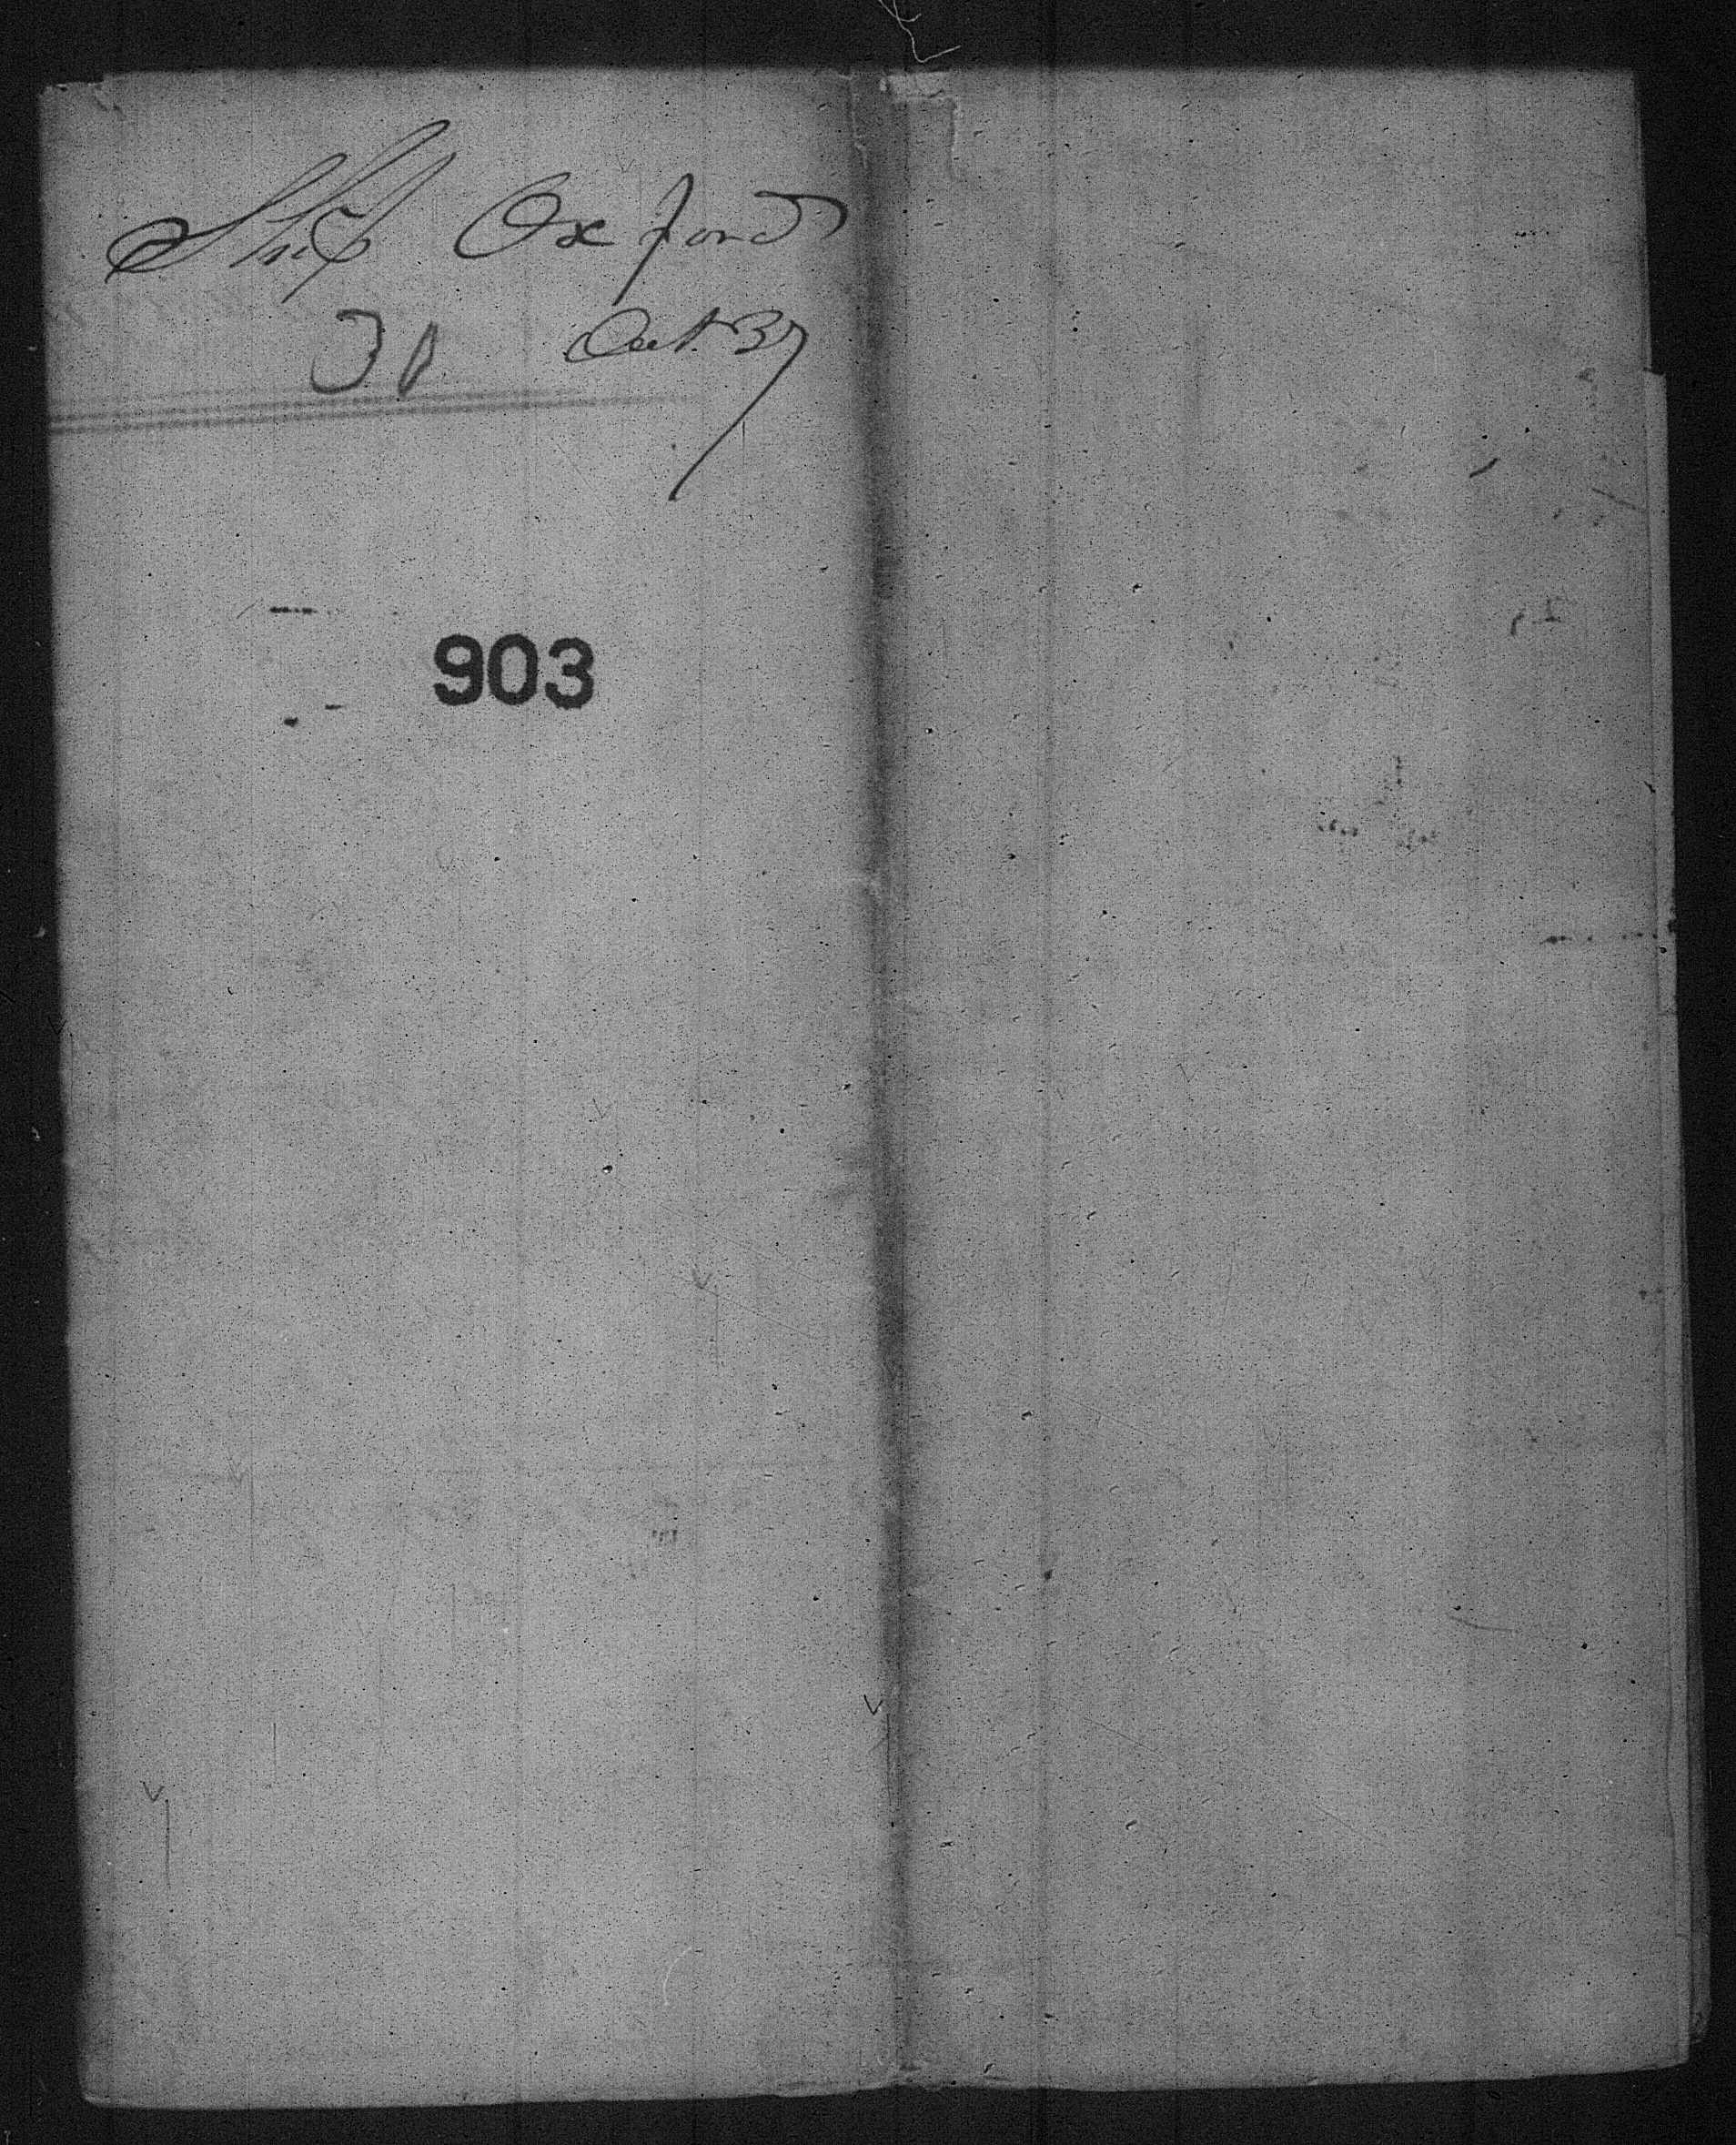 Ship Oxford
30 Oct. 37
903